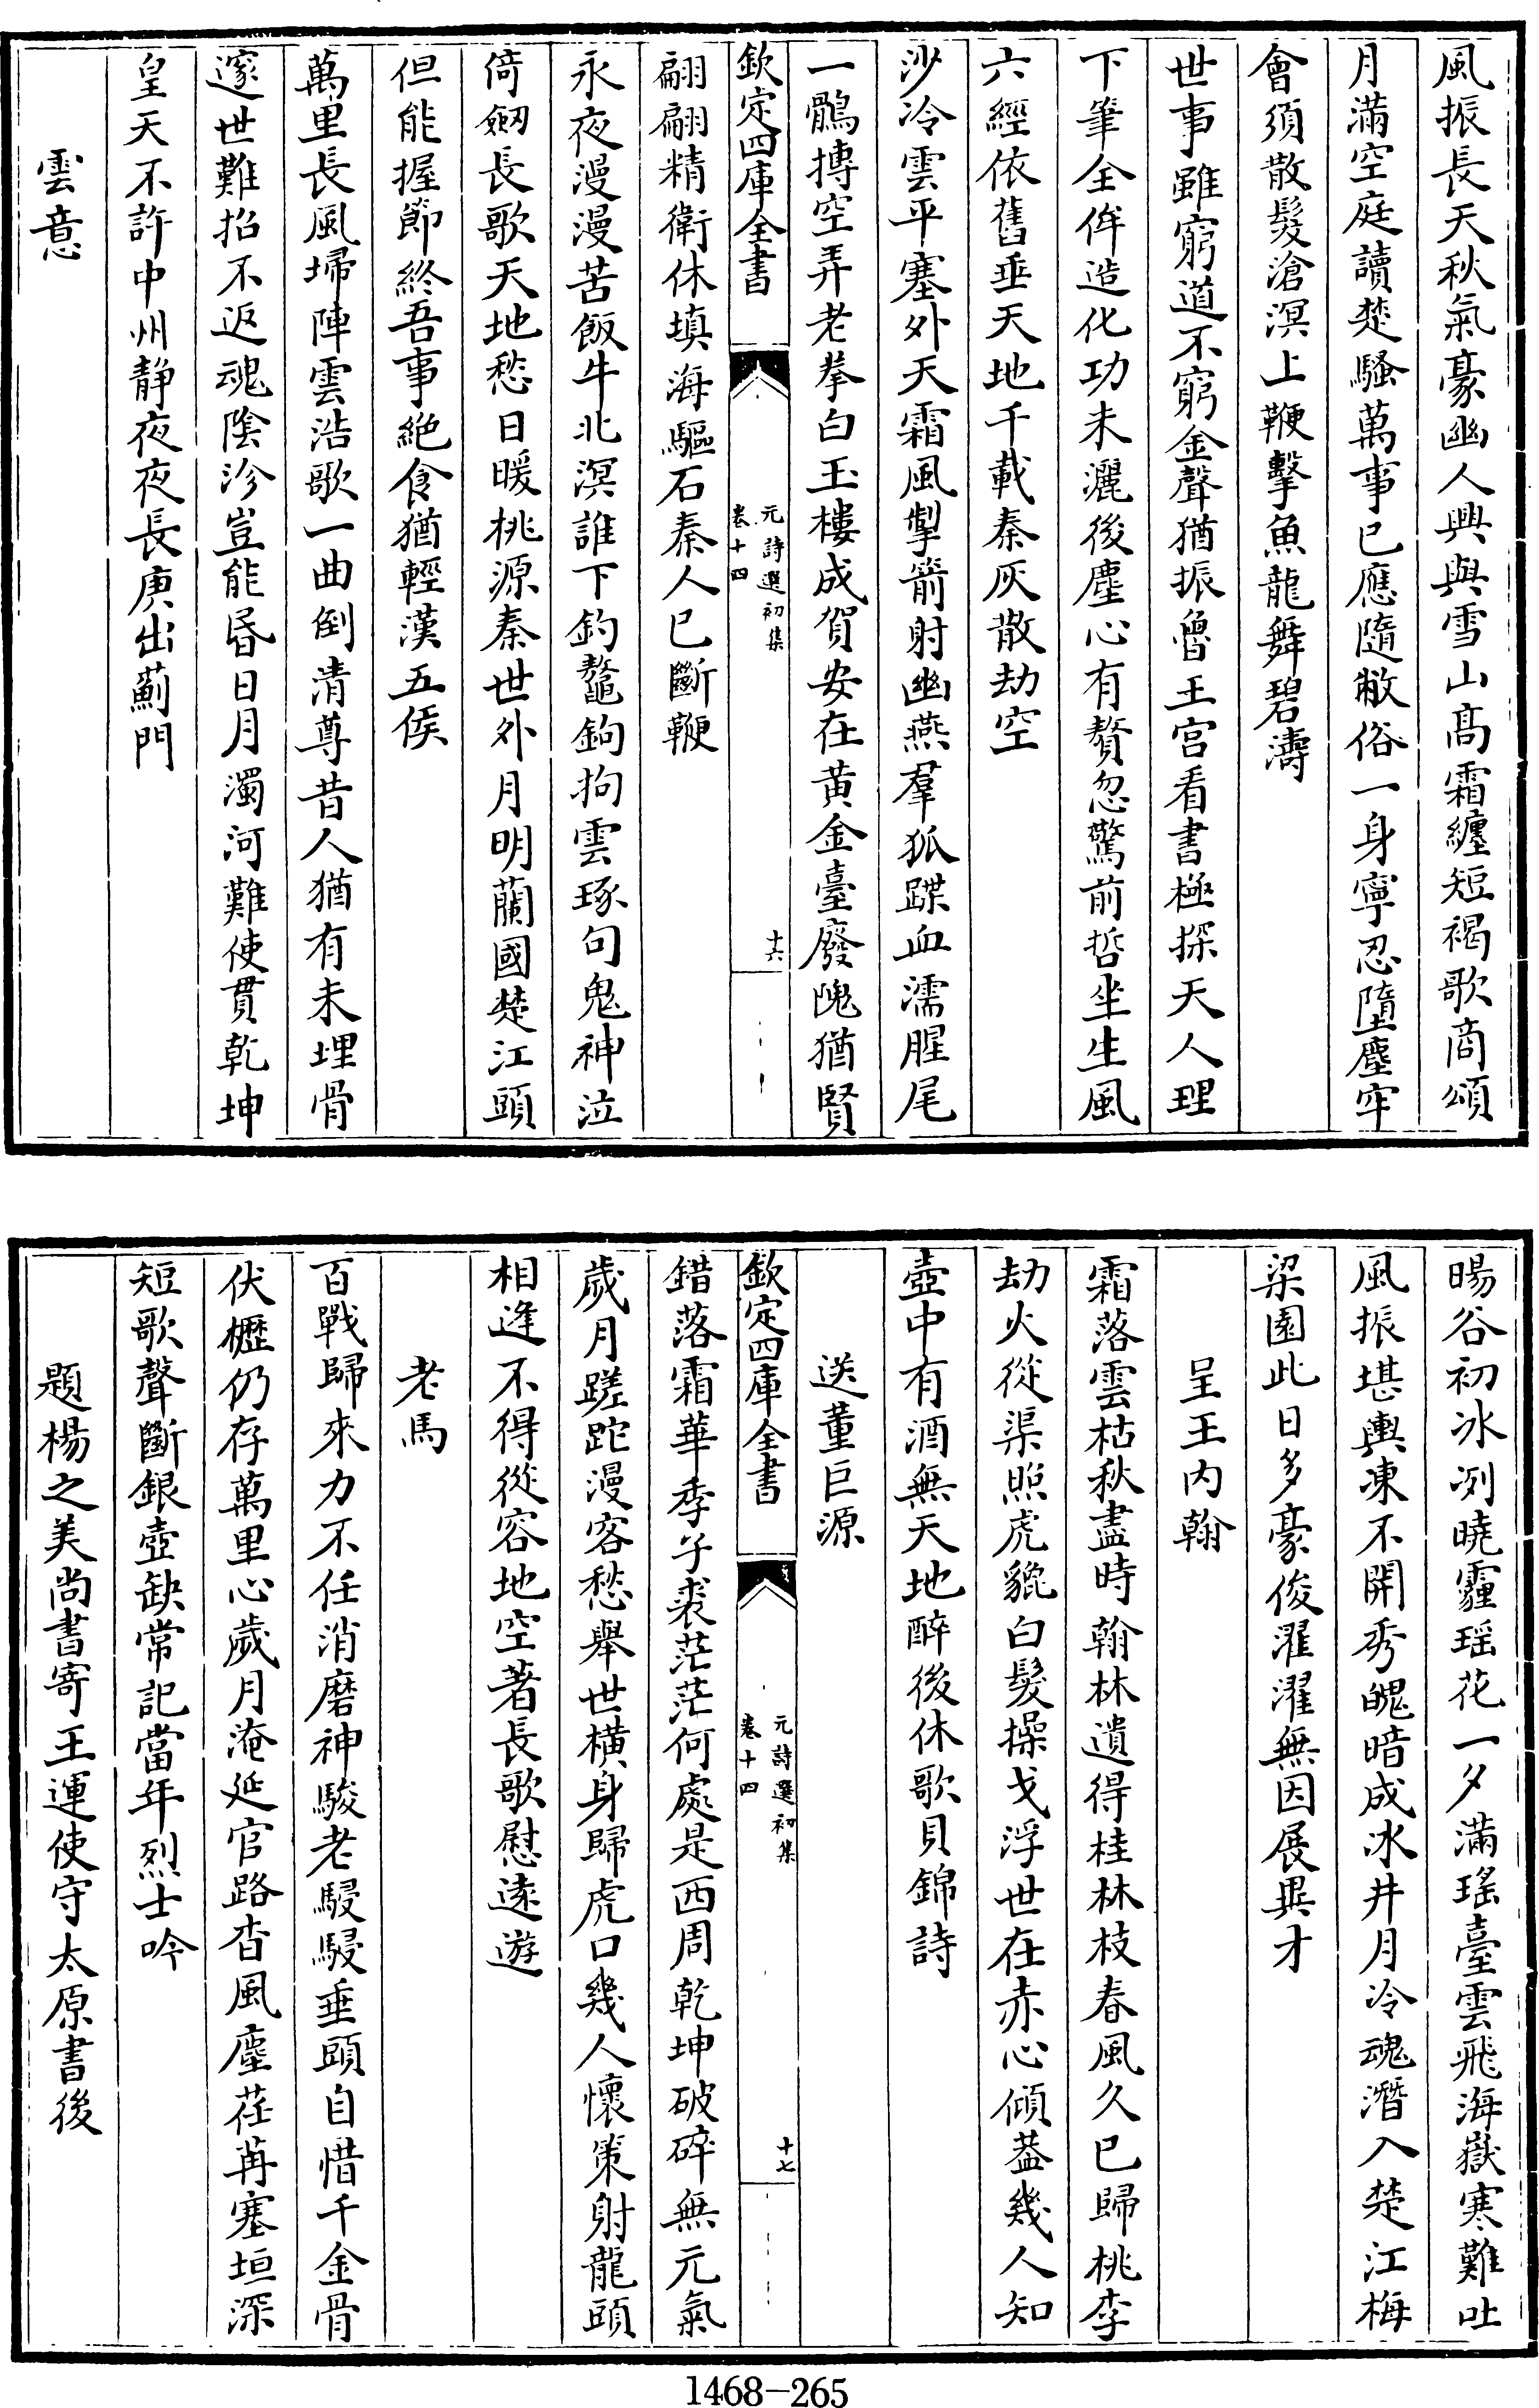 風振長天秋氣豪幽人興與雪山髙霜纏短褐歌商頌
月滿空庭讀楚騷萬事已應隨敝俗一身寧忍墮塵牢
會須散髮滄溟上鞭擊魚龍舞碧濤
世事雖窮道不窮金聲猶振魯王宫看書極探天人理
下筆全侔造化功未灑後塵心有贅忽驚前哲坐生風
六經依舊垂天地千載秦灰散劫空
沙冷雲平塞外天霜風掣箭射幽燕羣狐蹀血濡腥尾
一鶻摶空弄老拳白玉樓成賀安在黄金臺廢隗猶賢
欽定四庫全書
元詩選初集
卷十四
十六
翩翩精衛休填海驅石秦人已斷鞭
永夜漫漫苦飯牛北溟誰下釣鼇鉤拘雲琢句鬼神泣
倚劒長歌天地愁日暖桃源秦世外月明蘭國楚江頭
但能握節終吾事絶食猶輕漢五侯
萬里長風埽陣雲浩歌一曲倒清尊昔人猶有未埋骨
邃世難招不返魂陰沴豈能昏日月濁河難使貫乾坤
皇天不許中州静夜夜長庚出薊門
雲意
暘谷初冰冽曉霾瑶花一夕滿瑤臺雲飛海嶽寒難吐
風振堪輿凍不開秀魄暗成冰井月冷魂潛入楚江梅
梁園此日多豪俊濯濯無因展異才
呈王内翰
霜落雲枯秋盡時翰林遺得桂林枝春風久已歸桃李
劫火從渠照虎貔白髮操戈浮世在赤心傾葢幾人知
壺中有酒無天地醉後休歌貝錦詩
送董巨源
欽定四庫全書
元詩選初集
卷十四
十七
錯落霜華季子裘茫茫何處是西周乾坤破碎無元氣
歲月蹉跎漫客愁舉世横身歸虎口幾人懷策射龍頭
相逢不得從容地空著長歌慰遠遊
老馬
百戰歸來力不任消磨神駿老駸駸垂頭自惜千金骨
伏櫪仍存萬里心歲月淹延官路杳風塵荏苒塞垣深
短歌聲斷銀壺缺常記當年烈士吟
題楊之美尚書寄王運使守太原書後
1468-265